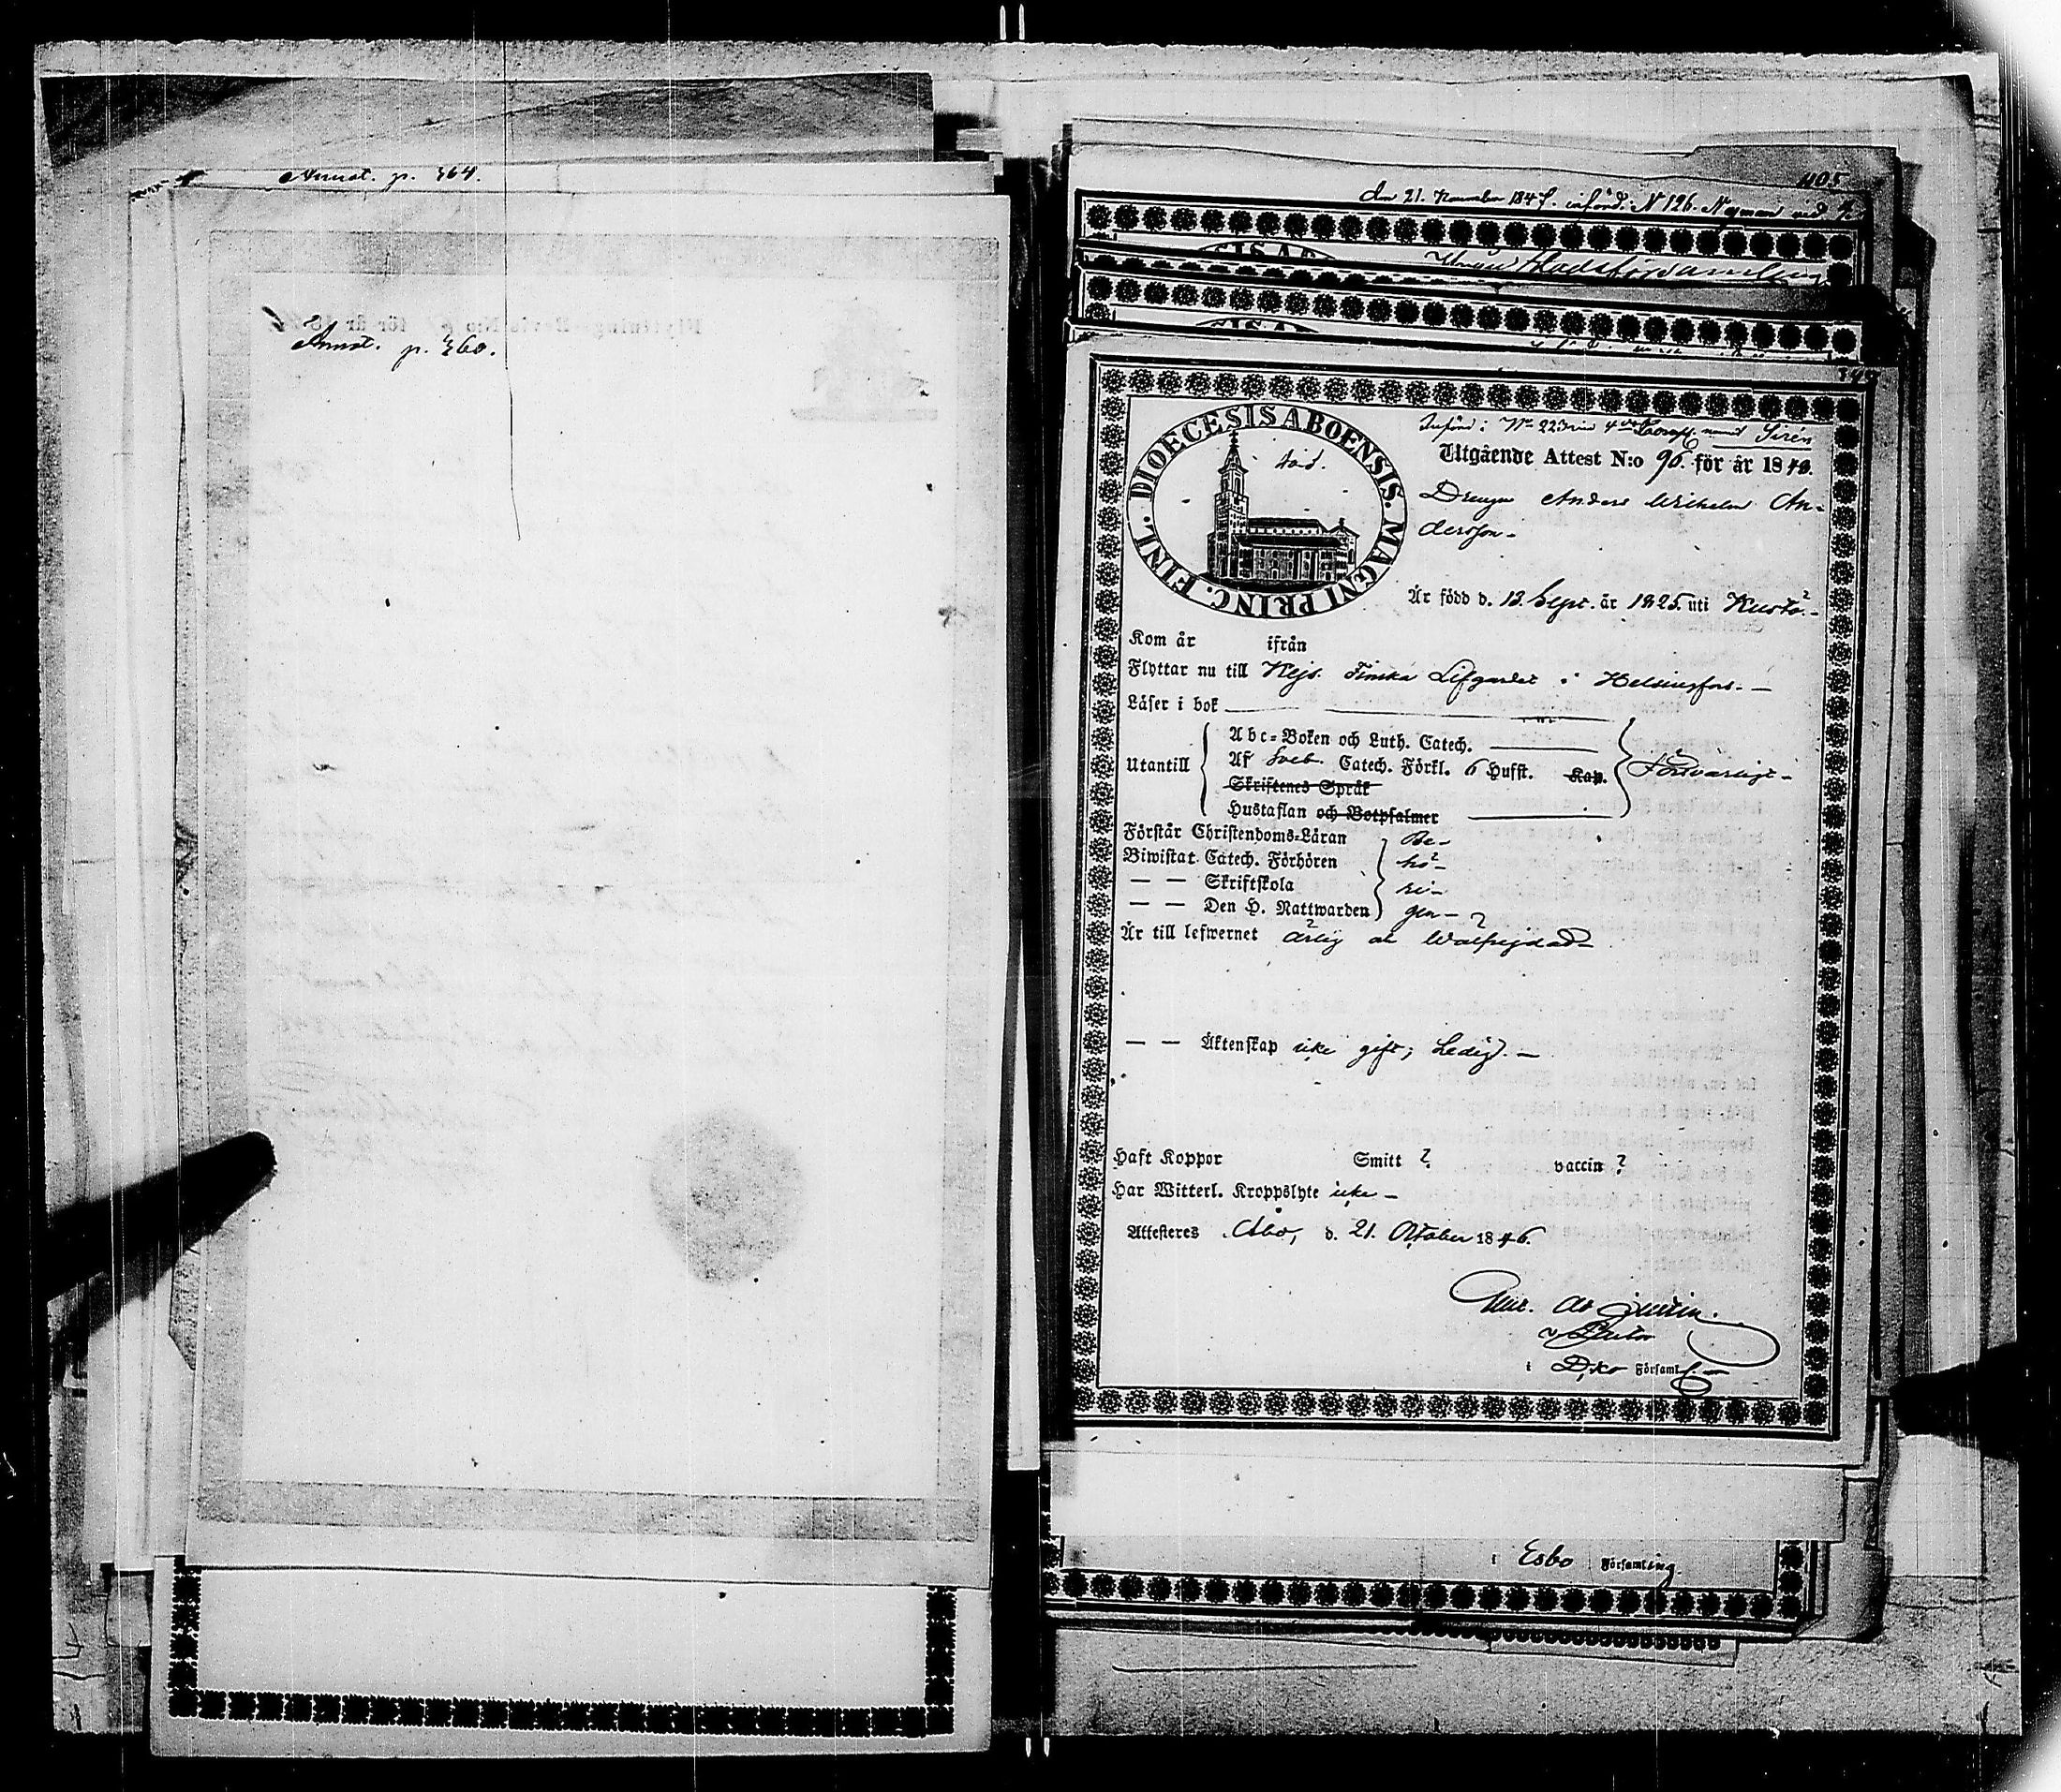 Annot. p. 364.
Annot. p. 360.
405
den 21. November 184 införd. N 126. Nyman vid 4
Stadsförsamling
Införd: No 223 vid 4de Comp. namn Sirén
DIOECESIS ABOENSIS. MAGNI PRINC. FINL.
död.
Utgående Attest N:o 96. för år 1846.
Drengen Anders Wilhelm An-
dersson-
Är född d. 13. Sept. är 1825. uti Kustö.-
Kom år ifrån
Flyttar nu till Kejs. Finska Lifgardet i Helsingfors.-
Läser i bok
Utantill
Abc-Boken och Luth. Catech.
Af Sveb. Catech. Förkl. 6 Hufst. Kap.
Skriftenes Språk
Hustaflan och Botpsalmer
Försvarligt-
Förstår Christendoms-Läran Be-
Biwistat Catech. Förhören hö-
— — Skriftskola ri-
— — Den H. Nattwarden gen-
Är till lefwernet ärlig och wälfrejdad-
— — Äktenskap icke gift; Ledig.-
Haft Koppor Smitt ? vaccin ?
Har Witterl. Kroppslyte icke -
Attesteres Åbo, d. 21. October 1846.
v Pastor
i Dito Församl
i Esbo Församling.